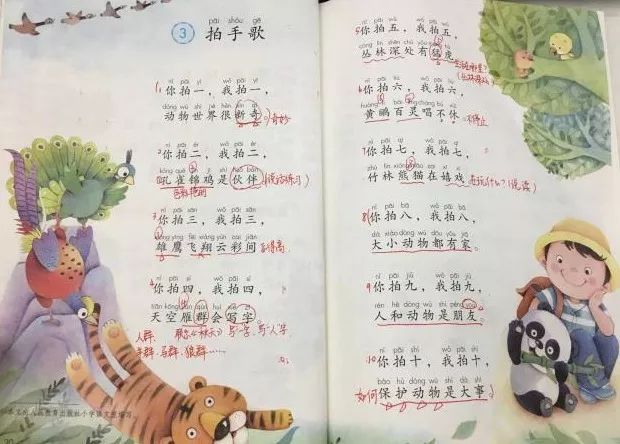 pāi shǒu gē
3 拍手歌
nǐ pāi yī wǒ pāi yī
1, 你拍一，我拍一，
dòng wù shì jiè hěn xīn qí
动物世界很新奇。奇妙
nǐ pāi èr wǒ pāi èr
2, 你拍二，我拍二，
kǒng què jǐn jī shì huǒ bàn
孔雀锦鸡是伙伴。
色彩艳丽
nǐ pāi sān wǒ pāi sān
3, 你拍三，我拍三，
xióng yīng fēi xiáng yún cǎi jiān
雄鹰飞翔云彩间。飞得高
nǐ pāi sì wǒ pāi sì
4, 你拍四，我拍四，
tiān kōng yàn qún huì xiě zì
天空雁群会写字。
人群
羊群、马群、狼群……
本文由人民教育出版社小学语文室编写。
nǐ pāi wǔ wǒ pāi wǔ
5, 你拍五，我拍五，
cóng lín shēn chù yǒu měng hǔ
丛林深处有猛虎。
nǐ pāi liù wǒ pāi liù
6, 你拍六，我拍六，
huáng lí bǎi líng chàng bù xiū
黄鹂百灵唱不休。不停止
nǐ pāi qī wǒ pāi qī
7, 你拍七，我拍七，
zhú lín xióng māo zài xī xì
竹林熊猫在嬉戏。在玩什么？
nǐ pāi bā wǒ pāi bā
8, 你拍八，我拍八，
dà xiǎo dòng wù dōu yǒu jiā
大小动物都有家。
nǐ pāi jiǔ wǒ pāi jiǔ
9, 你拍九，我拍九，
rén hé dòng wù shì péng you
人和动物是朋友。
nǐ pāi shí wǒ pāi shí
10, 你拍十，我拍十，
bǎo hù dòng wù shì dà shì
如何 保护动物是大事。